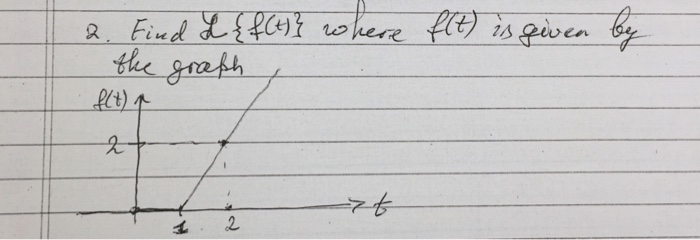 2. Find ℒ{f(t)} where f(t) is given by
the graph
f(t)
2
t
1 2